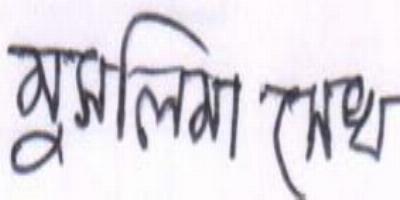 মুসলিমা সেখ